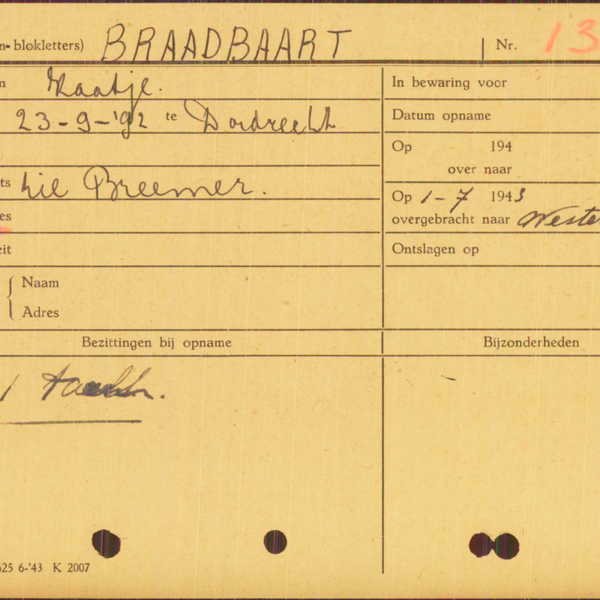 n- blokletters) BRAADBAART Nr. 13
n Kaatje. In bewaring voor
23-9-'92 te Dordrecht Datum opname
Op 194
over naar
ts Breemer. Op 1-7 1943
es overgebracht naar Weste
eit Ontslagen op
Naam
Adres
Bezittingen bij opname Bijzonderheden
1
625 6-'43 K 2007